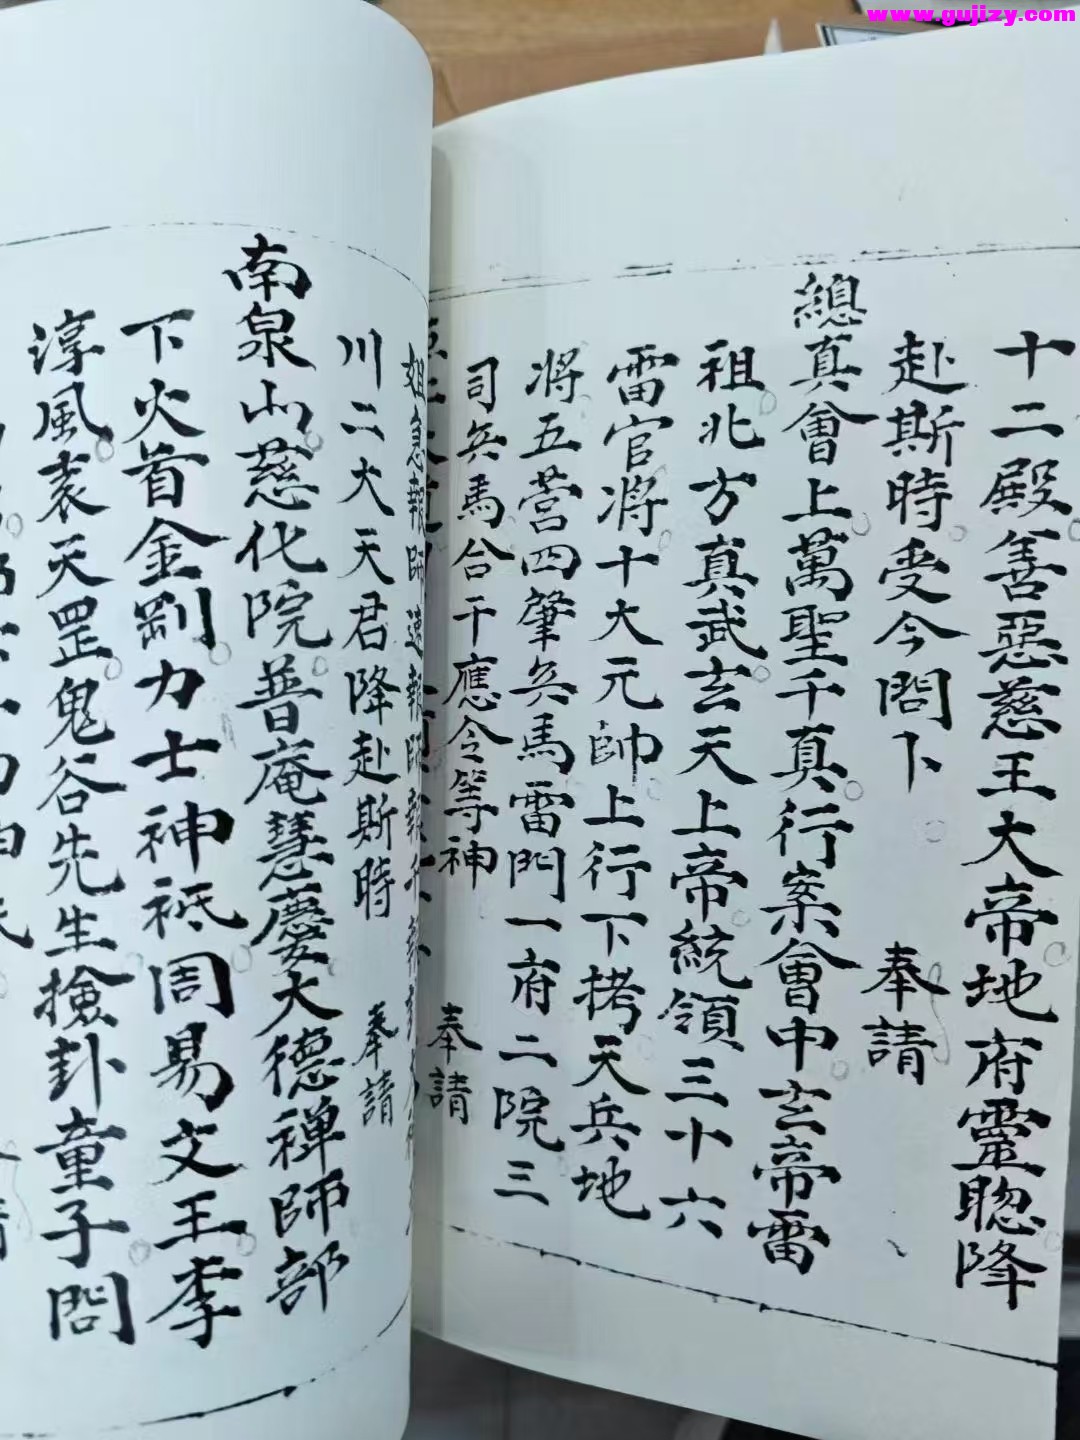 www.gujizy.com
十二殿善惡慈王大帝地府靈聰降
赴斯時受今問卜 奉請
總真會上萬聖千真行案會中玄帝雷
祖北方真武玄天上帝統領三十六
雷官將十大元帥上行下拷天兵地
將五營四肇兵馬雷門一府二院三
司兵馬合干應令等神 奉請
姐急報師速報師報
川二大天君降赴斯時 奉請
南泉山慈化院普庵慧慶大德禅師部
下火首金剛力士神祇周易文王李
淳風袁天罡鬼谷先生撿卦童子問